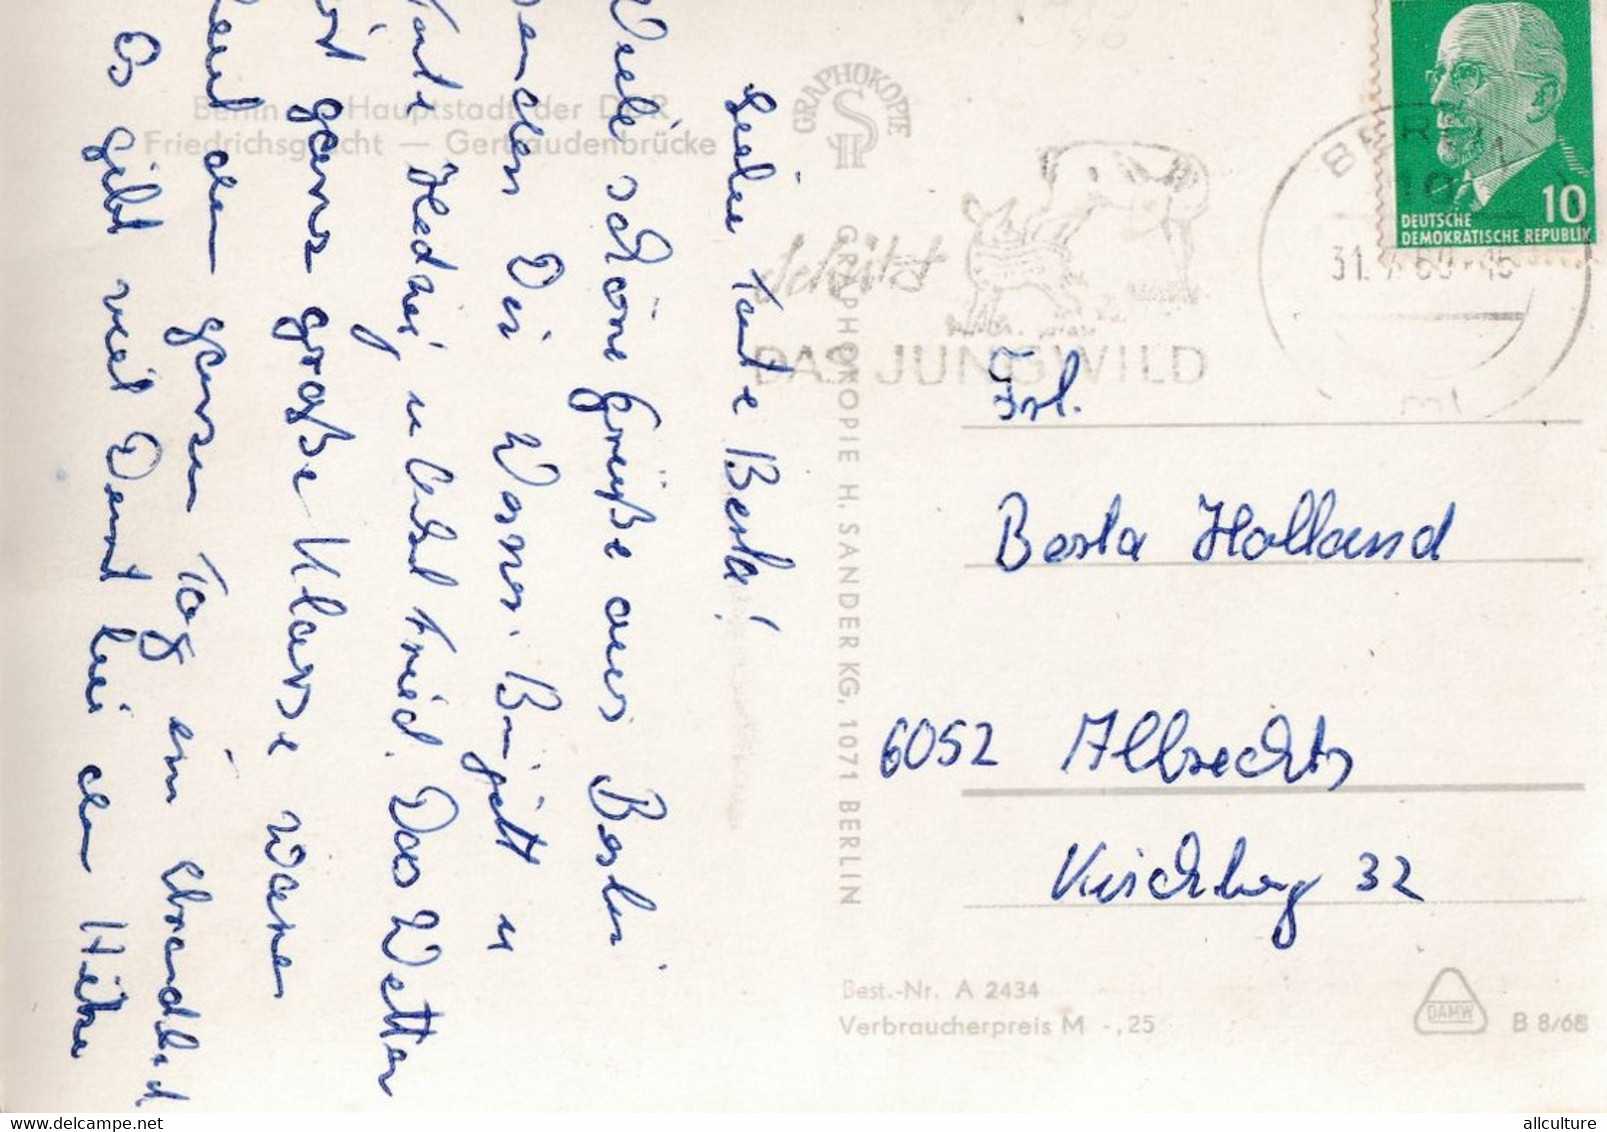 Berlin - Hauptstadt der DDR
Friedrichsgracht — Gertraudenbrücke
Liebe Tante Berta!
Viele schöne Grüße aus Berlin
senden Dir Werner. Birgitt u
Tante Hedwig u Onkel Fried. Das Wetter
ist ganz große Klasse waren
heut den ganzen Tag im
Es gibt viel Durst bei der Hitze
GRAPHOKOPIE
GRAPHOKOPIE H. SANDER KG, 1071 BERLIN
schützt
DAS JUNGWILD
BERLIN
31. 7. 69-15
mt
10
DEUTSCHE
DEMOKRATISCHE REPUBLIK
Frl.
Berta Holland
6052 Albrechts
Kirchberg 32
Best.-Nr. A 2434
Verbraucherpreis M -,25
DAMW
B 8/68
allculture